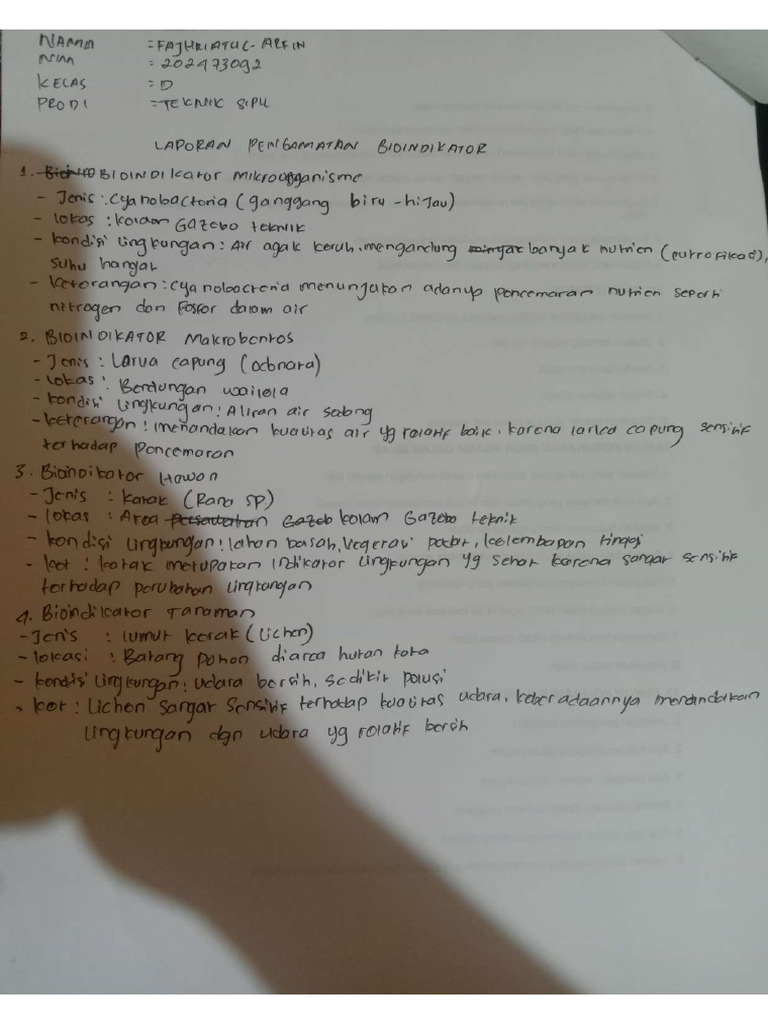 NAMA = FAJHRIATUL ARFIN
NIM = 202473092
KELAS = D
PRODI = TEKNIK SIPIL
LAPORAN PENGAMATAN BIOINDIKATOR
1. BIOINDIKator Mikroorganisme
- Jenis : Cyanobacteria (ganggang biru - hijau)
- lokas : kolam Gazebo teknik
- kondisi lingkungan : Air agak keruh, mengandung banyak nutrien (eutrofikasi),
suhu hangat
- keterangan : cyanobacteria menunjukan adanya pencemaran nutrien seperti
nitrogen dan fosfor dalam air
2. BIOINDIKATOR Makrobentos
- Jenis : Larva capung (odonara)
- lokas : Bendungan wailela
- kondisi lingkungan : Aliran air sedang
- keterangan : menandakan kualitas air yg relatif baik, karena larva capung sensitif
terhadap pencemaran
3. Bioindikator Hewan
- Jenis : Katak (Rana sp)
- lokas : Area kolam Gazebo teknik
- kondisi lingkungan : lahan basah, vegetasi padat, kelembapan tinggi
- ket : katak merupakan indikator lingkungan yg sehat karena sangat sensitif
terhadap perubahan lingkungan
4. Bioindikator Tanaman
- Jenis : lumut kerak (lichen)
- lokasi : Batang pohon diarea hutan kota
- kondisi lingkungan : udara bersih, sedikit polusi
- ket : lichen sangat sensitif terhadap kualitas udara, keberadaannya menandakan
lingkungan dgn udara yg relatif bersih